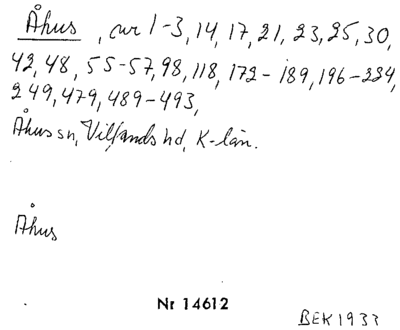 Åhus, cur 1-3, 14, 17, 21, 23, 25, 30,
42, 48, 55-57, 98, 118, 172-189, 196-234,
249, 479, 489-493,
Åhus sn, Villands hd, K-län.
Åhus
Nr 14612
BEK 1933